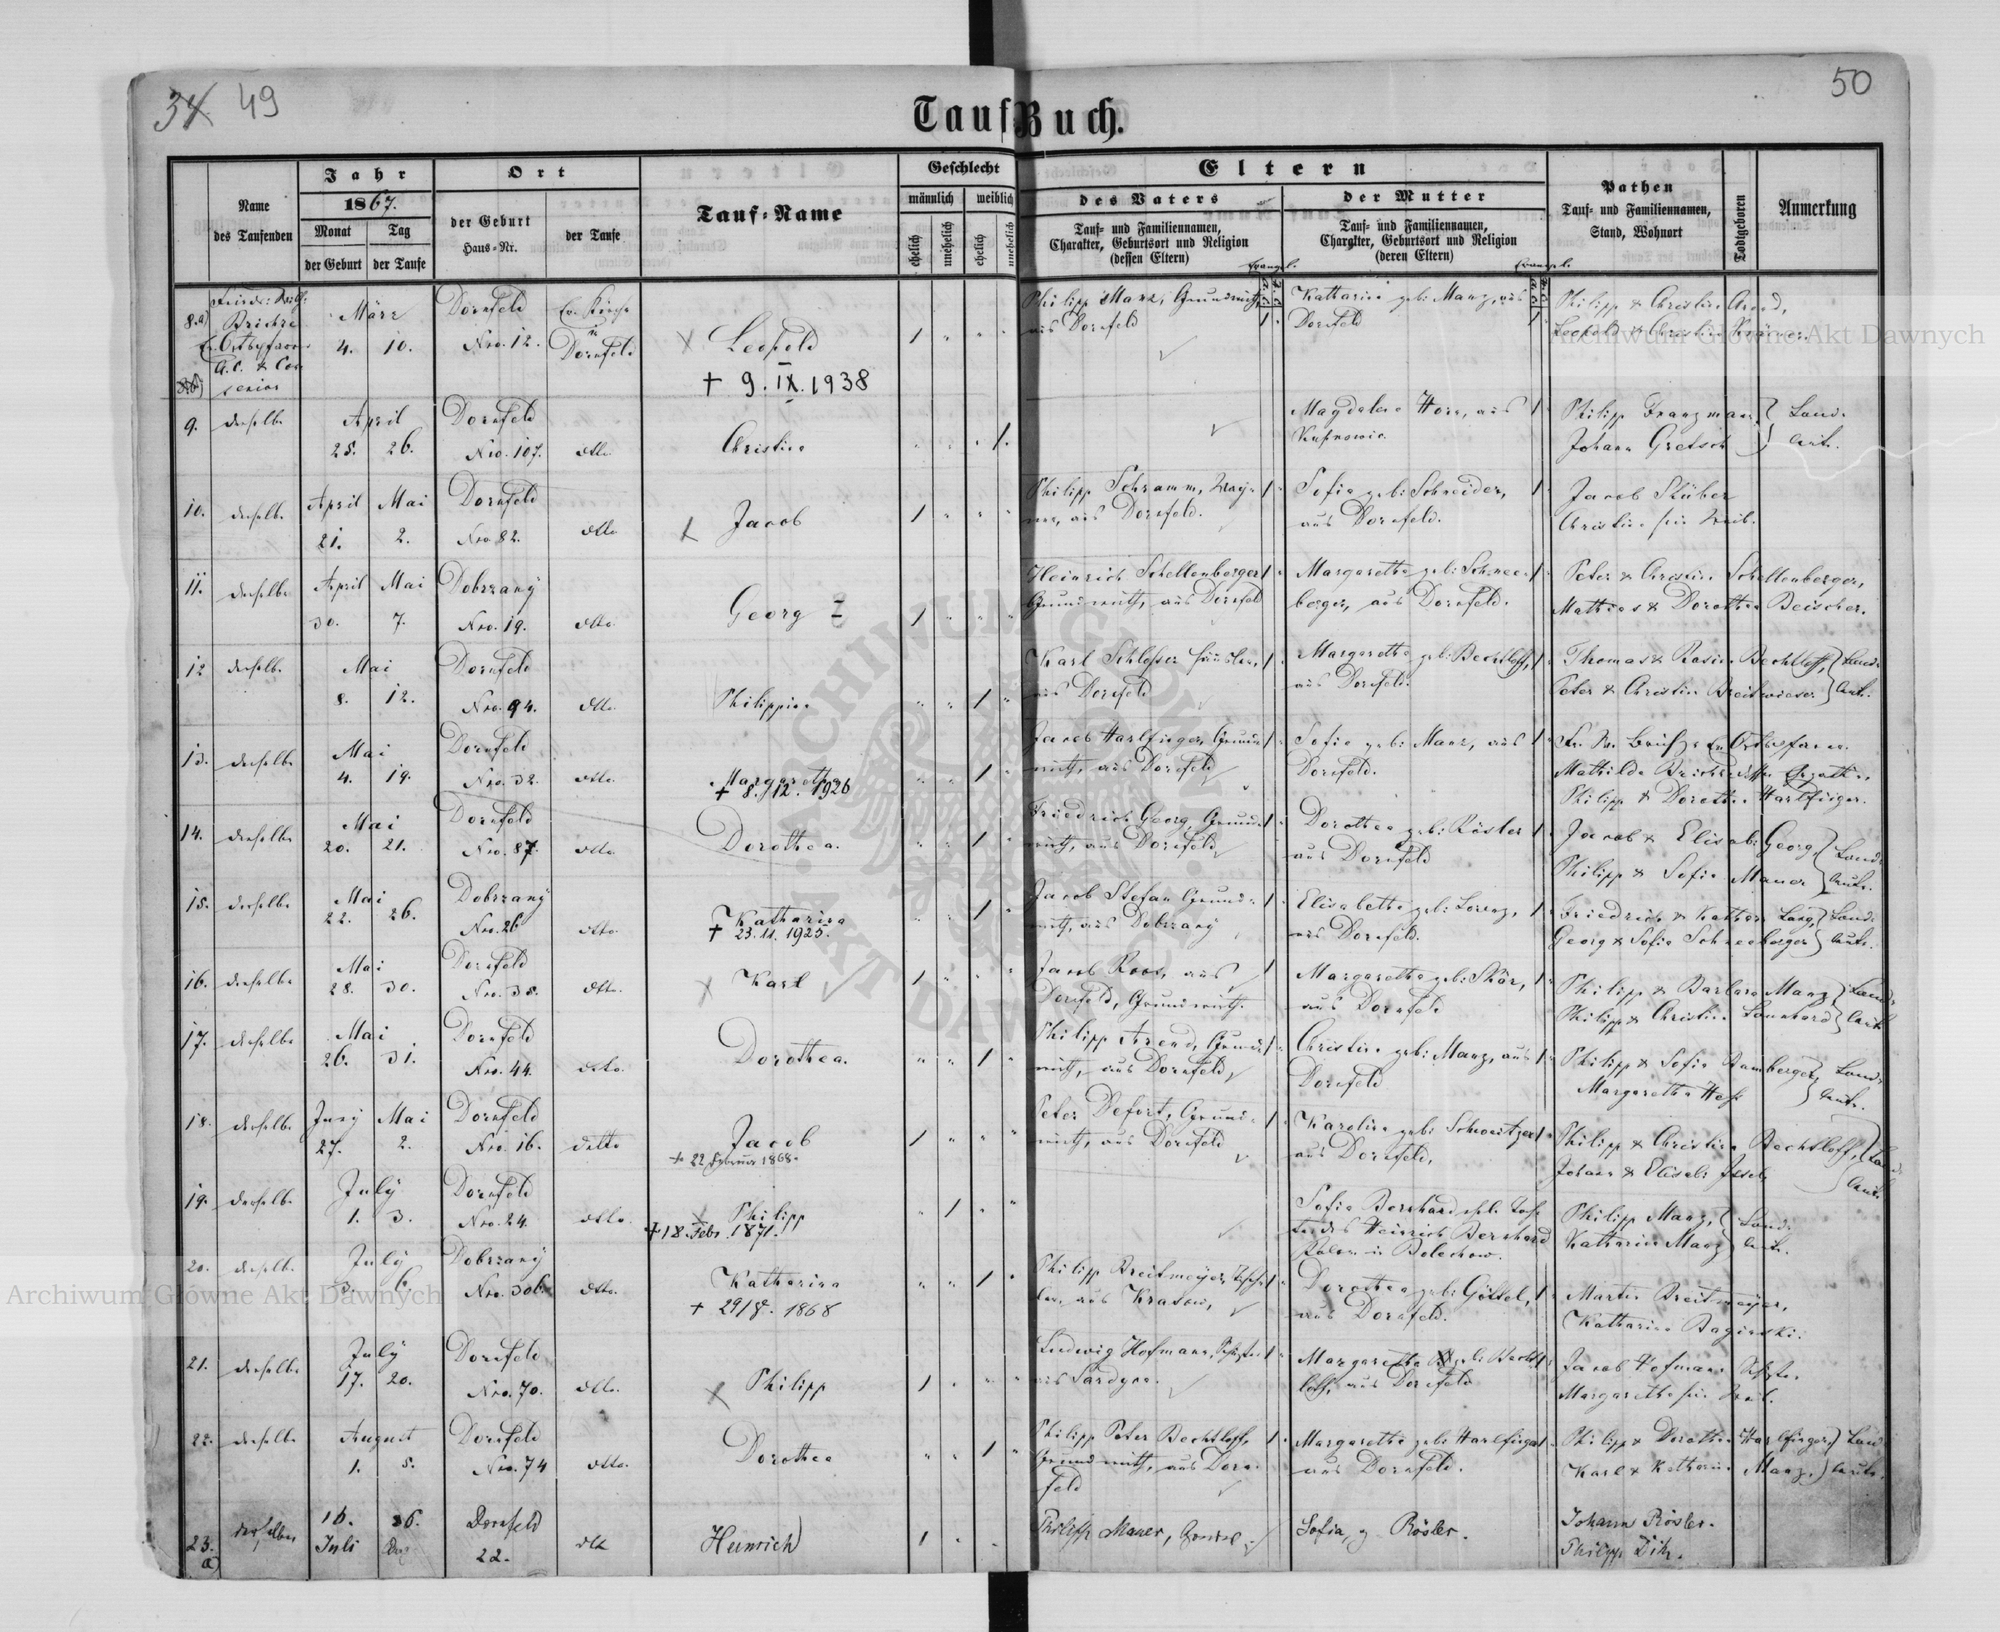 34. 49
50
TaufBuch.
Name
des Taufenden
Jahr
1867.
Monat
Tag
der Geburt
der Taufe
Ort
der Geburt
Haus-Nr.
der Taufe
Tauf-Name
Geschlecht
männlich
weiblich
ehelich
unehelich
ehelich
unehelich
Eltern
des Vaters
Tauf- und Familiennamen,
Charakter, Geburtsort und Religion
(dessen Eltern)
Evangel.
der Mutter
Tauf- und Familiennamen,
Charakter, Geburtsort und Religion
(deren Eltern)
Evangel.
Pathen
Tauf- und Familiennamen,
Stand, Wohnort
Todtgeboren
Anmerkung
8.a)
März
4. 10.
Dornfeld
Nro. 12.
Ev. Kirche
Dornfeld
Leopold
+ 9. IX. 1938
1
Philipp Manz, Grundwirth,
aus Dornfeld
Katharina geb: Manz, aus
Dornfeld
Philipp & Christine Arend,
9. derselbe
April
25. 26.
Dornfeld
Nro. 107.
dtto
Christine
1.
Magdalena Horn, aus
Philipp Franzmann
Johann Gretsch
Land-
leute.
10. derselbe
April Mai
21. 2.
Dornfeld
Nro. 82.
dtto
Jacob
1
Philipp Schramm, Wag-
ner, aus Dornfeld.
Sofie geb: Schneider,
aus Dornfeld.
Jacob Stüber
Christine sein Weib.
11. derselbe
April Mai
30. 7.
Dobrzany
Nro. 19.
dtto
Georg
1
Heinrich Schellenberger
Grundwirth, aus Dornfeld
Margaretha geb: Schnee-
berger, aus Dornfeld.
Peter & Christine Schellenberger,
Mathias & Dorothea Beischer.
12 derselbe
Mai
8. 12.
Dornfeld
Nro. 94.
dtto
Philippine
1
Karl Schlosser Häusler,
aus Dornfeld
Margaretha geb: Bechtloff,
aus Dornfeld.
Thomas & Rosine Bechtloff,
Peter & Christine Breitwieser
Land-
leute.
13. derselbe
Mai
4. 19.
Dornfeld
Nro. 32.
dtto
Margareth
+ 8./12. 1926
1
Jacob Harlfinger, Grund-
wirth, aus Dornfeld
Sofie geb: Manz, aus
Dornfeld.
Philipp & Dorothea Harlfinger.
14. derselbe
Mai
20. 21.
Dornfeld
Nro. 87.
dtto
Dorothea.
1
Friedrich Georg, Grund-
wirth, aus Dornfeld
Dorothea geb: Rösler
aus Dornfeld
Jacob & Elisab: Georg,
Philipp & Sofie Mauer
Land-
leute.
15. derselbe
Mai
22. 26.
Dobrzany
Nro. 26
dtto.
Katharina
+ 23.11.1925.
1
Jacob Stefan Grund-
wirth, aus Dobrzany
Elisabetha geb: Lorenz,
aus Dornfeld.
Friedrich & Kathar: Lang,
Georg & Sofie Schneeberger
Land-
leute.
16. derselbe
Mai
28. 30.
Dornfeld
Nro. 35.
dtto.
Karl
1
Jacob Roos, aus
Dornfeld, Grundwirth.
Margaretha geb: Skör,
aus Dornfeld
Philipp & Barbara Manz
Philipp & Christine Leonhard
Land-
leute
17. derselbe
Mai
26. 31.
Dornfeld
Nro. 44.
dtto.
Dorothea.
1
Philipp Arend, Grund-
wirth, aus Dornfeld,
Christine geb: Manz, aus
Dornfeld
Philipp & Sofie Bamberger,
Margaretha Hess
Land-
leute.
18. derselbe
Juny Mai
27. 2.
Dornfeld
Nro. 16.
detto
Jacob
+ 22 Februar 1868.
1
Peter Defort, Grund-
wirth, aus Dornfeld
Karoline geb: Schweitzer
aus Dornfeld.
Philipp & Christine Bechtloff,
Johann & Elisab:
leute.
19. derselbe
July
1. 3.
Dornfeld
Nro. 24.
dtto.
Philipp
+18. Febr. 1871.
1
Sofie Bernhard
des Heinrich Bernhard
in Bolechow.
Philipp Manz,
Katharina Manz
Land-
leute.
20. derselbe
July
3. 6.
Dobrzany
Nro. 30b.
dtto.
Katharina
+ 29/8. 1868
1
Philipp Breitmeyer,
aus Krasow,
Dorothea geb: Göttel,
aus Dornfeld.
Martin Breitmeyer,
Katharina Baginski.
21. derselbe
July
17. 20.
Dornfeld
Nro. 70.
dtto.
Philipp
1
Ludwig Hofmann,
aus
Margaretha geb: Becht-
loff, aus Dornfeld
Jacob Hofmann
Margaretha sein Weib.
22. derselbe
August
1. 5.
Dornfeld
Nro. 74
dtto.
Dorothea
1
Philipp Peter Bechtloff,
Grundwirth, aus Dorn-
feld
Margaretha geb: Harlfinger
aus Dornfeld.
Philipp & Dorothea Harlfinger,
Karl & Katharina Manz,
Land-
leute.
23.
a)
derselbe
16. 26.
Juli
Dornfeld
22.
dtto
Heinrich
1
Philipp Mauer,
Sofia, g. Rösler.
Johann Rösler.
Philipp
Archiwum Główne Akt Dawnych
Archiwum Główne Akt Dawnych
ARCHIWUM GŁÓWNE AKT DAWNYCH